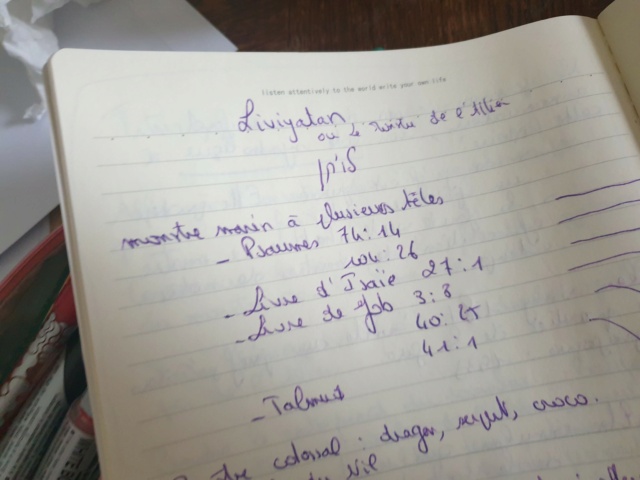 listen attentively to the world write your own life
Liviyatan
ou le
de
monstre marin à plusieurs têles
- Psaumes 74:14
104:26
- Livre d'Isaïe 27:1
- Livre de Job 3:8
40:25
41:1
- Talmud
colossal : dragon, serpent, croco.
Nil